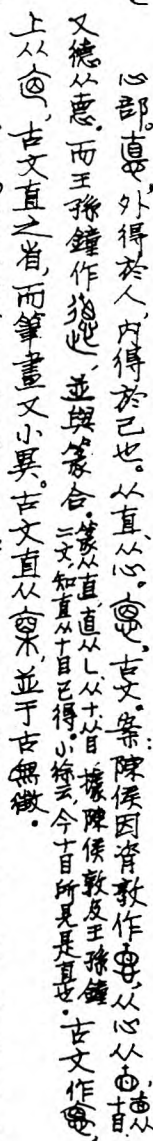 心部。惪，外得於人，內得於己也。从直、从心。悳，古文。案：陳侯因𬯎敦作惪，从心从𥃭，𥃭从十目。
又德从惪。而王孫鐘作德，並與篆合。篆从直，直从乚、从十、从目，據陳侯敦及王孫鐘二文，知直从十目已得。小徐云，今十目所見是直也。古文作
上从，古文直之省，而筆畫又小異。古文直从，並于古無徵。